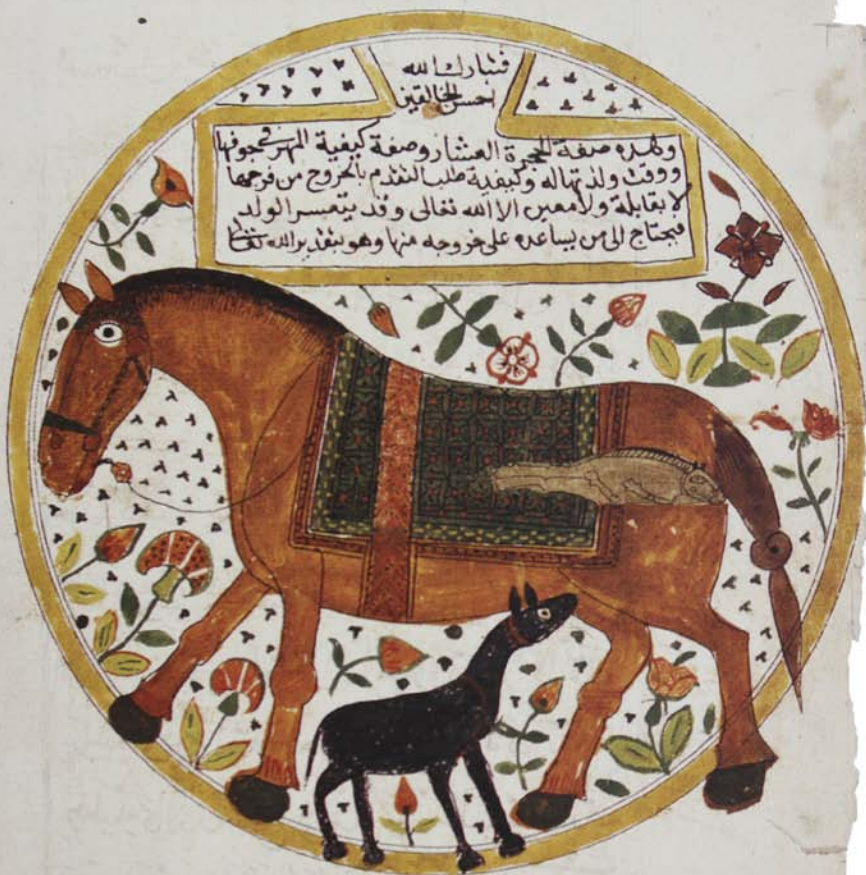 فتبارك الله
احسن الخالقين
وهذه صفة الحجرة العشار وصفة كيفية المهر في جوفها
ووقت ولدتها له وكيفية طلب التقدم بالخروج من فرجها
لا بقابلة ولا معين الا الله تعالى وقد يتعسر الولد
فيحتاج الى من يساعده على خروجه منها وهو بتقدير الله تعالى